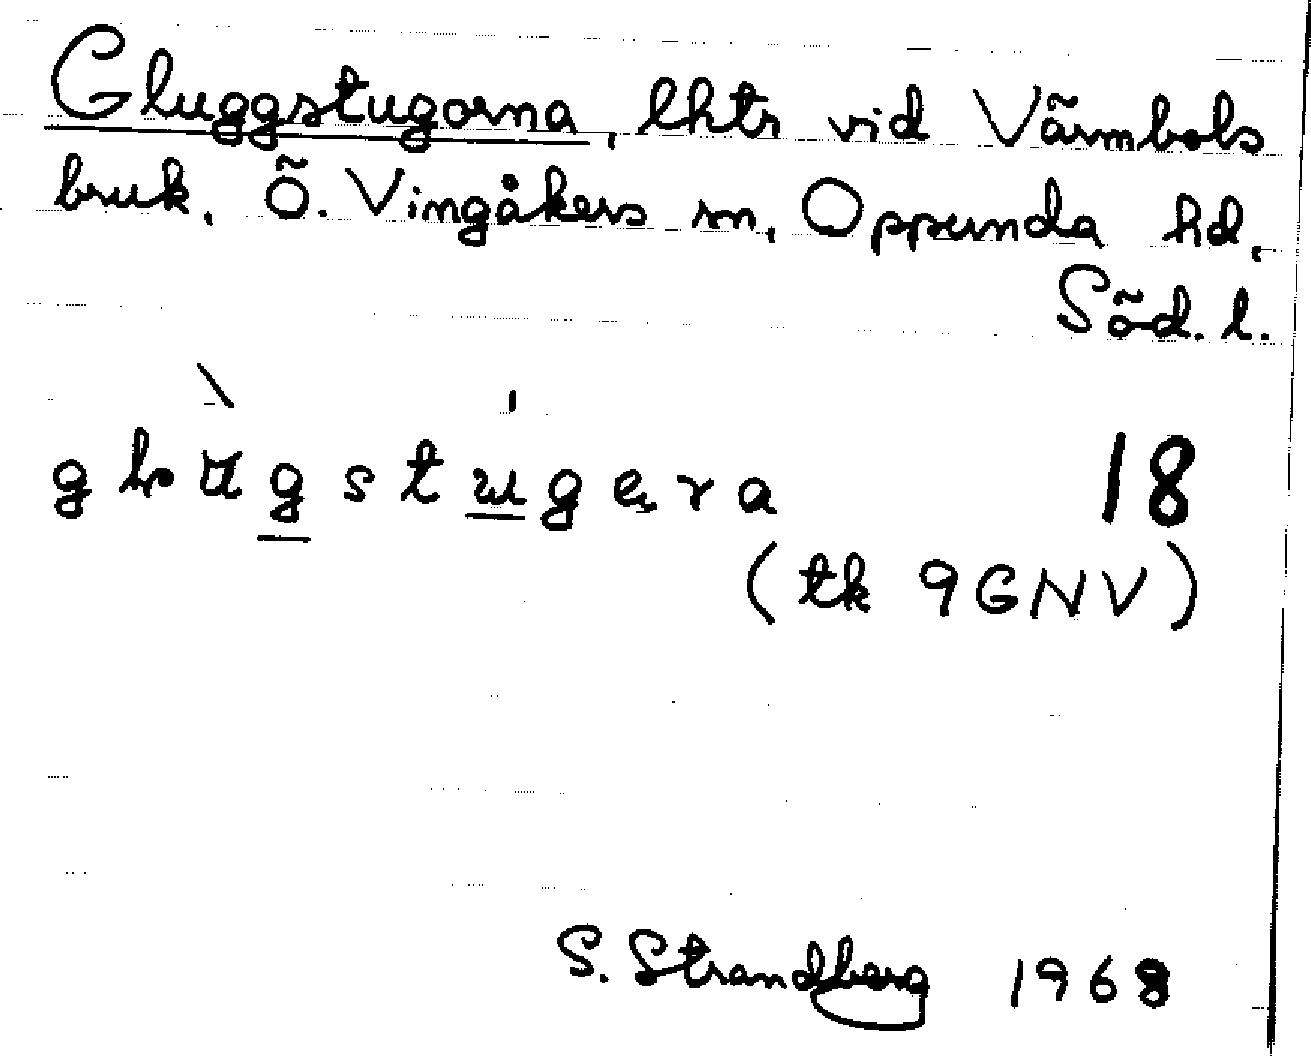 Gluggstugorna, lhtr vid Värmbols
bruk, Ö. Vingåkers sn, Oppunda hd,
Söd. l.
18
(tk 9GNV)
S. Strandberg 1968